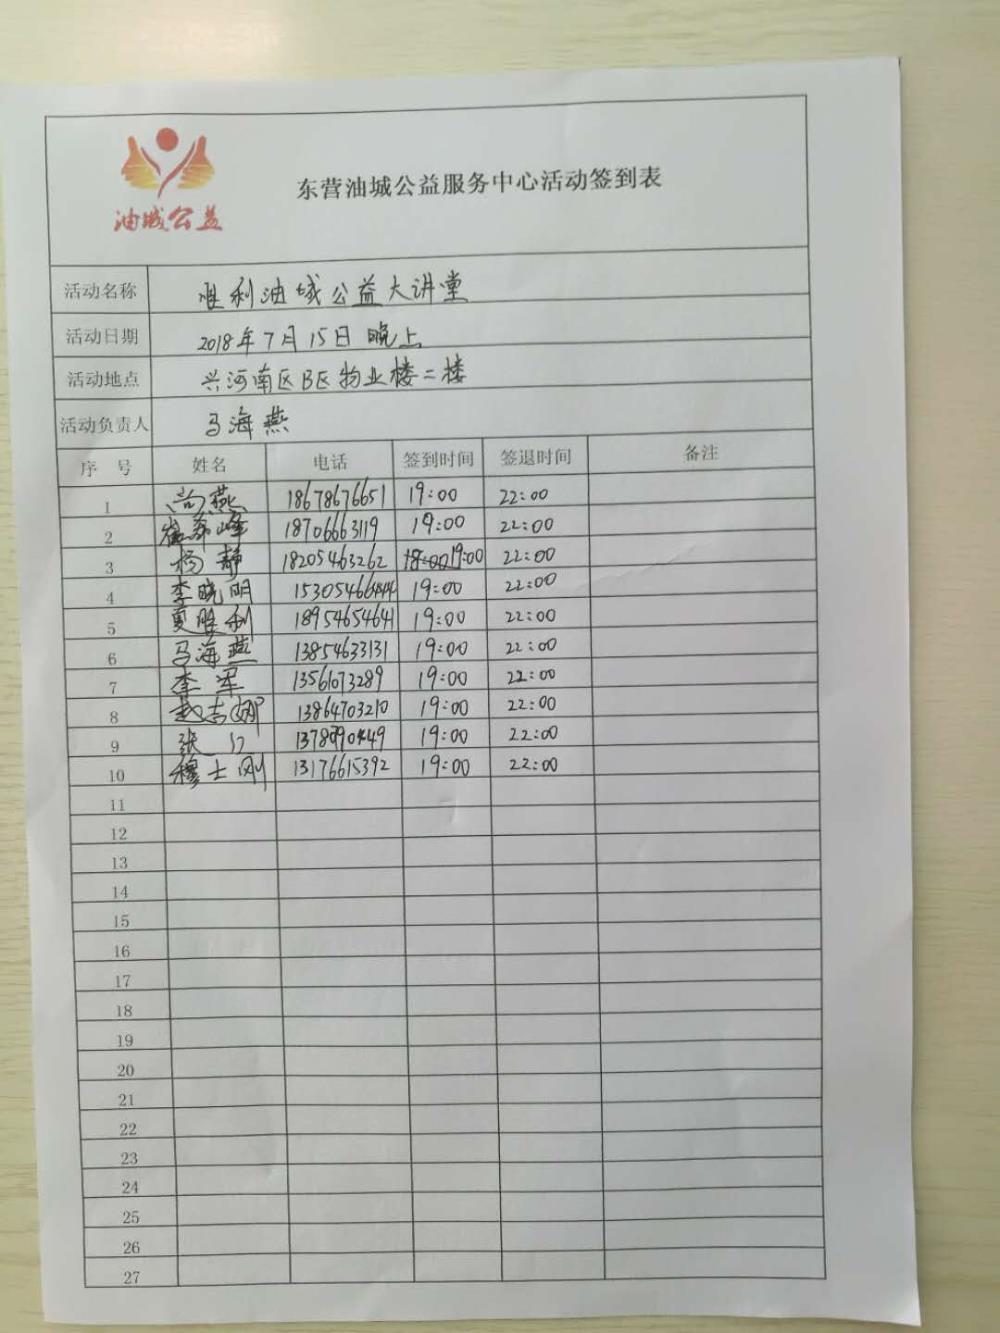 油城公益
东营油城公益服务中心活动签到表
活动名称 胜利油城公益大讲堂
活动日期 2018年7月15日 晚上
活动地点 兴河南区B区物业楼二楼
活动负责人 马海燕
序 号 姓名 电话 签到时间 签退时间 备注
1 尚燕 18678676651 19:00 22:00
2 18706663119 19:00 22:00
3 杨静 18205463262 18:00 19:00 22:00
4 李晓明 19:00 22:00
5 夏胜利 18954654641 19:00 22:00
6 马海燕 13854633131 19:00 22:00
7 李军 13561073289 19:00 22:00
8 赵志娜 13864703210 19:00 22:00
9 张 19:00 22:00
10 穆士刚 13176615392 19:00 22:00
11
12
13
14
15
16
17
18
19
20
21
22
23
24
25
26
27